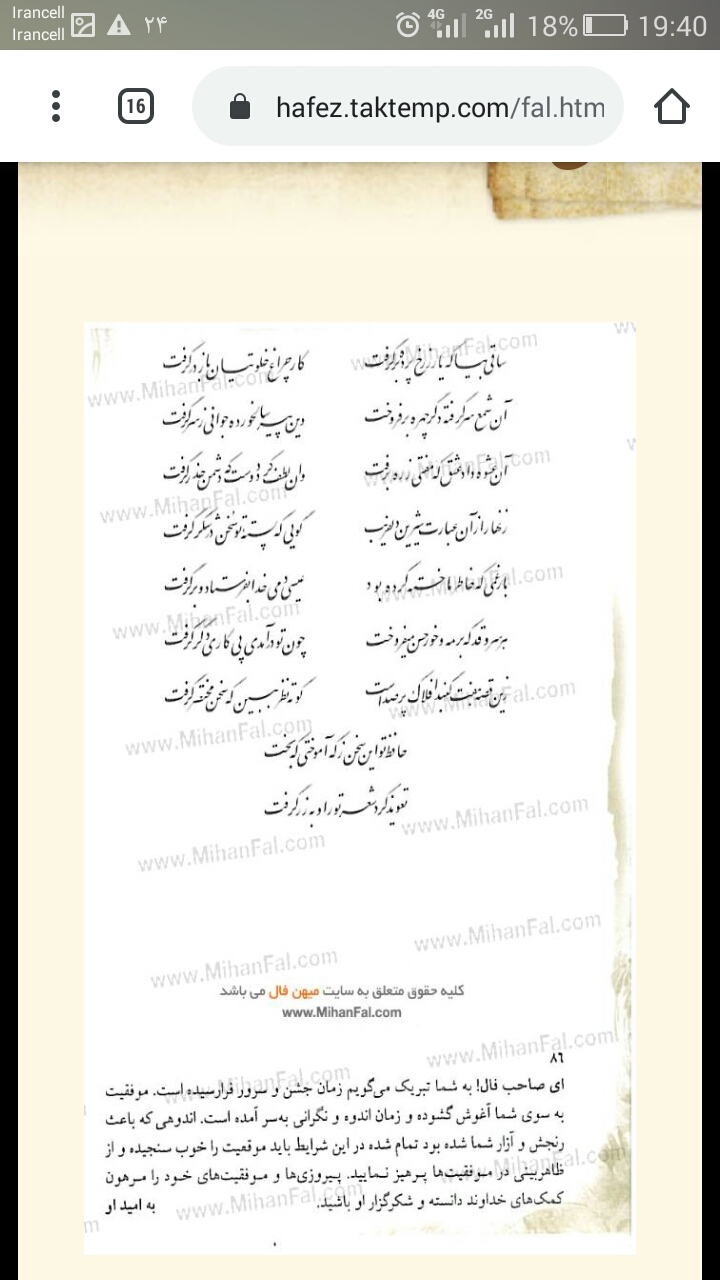 Irancell
Irancell
۲۴
4G
2G
18%
19:40
16
hafez.taktemp.com/fal.htm
ساقی بیا که یار ز رخ پرده برگرفت
کار چراغ خلوتیان باز درگرفت
آن شمع سرگرفته دگر چهره برفروخت
وین پیر سالخورده جوانی ز سر گرفت
آن عشوه داد عشق که مفتی ز ره برفت
وان لطف کرد دوست که دشمن حذر گرفت
زنهار از آن عبارت شیرین دلفریب
گویی که پسته تو سخن در شکر گرفت
بار غمی که خاطر ما خسته کرده بود
عیسی دمی خدا بفرستاد و برگرفت
هر سرو قد که بر مه و خور حسن می‌فروخت
چون تو درآمدی پی کاری دگر گرفت
زین قصه هفت گنبد افلاک پر صداست
کوته نظر ببین که سخن مختصر گرفت
حافظ تو این سخن ز که آموختی که بخت
تعویذ کرد شعر تو را و به زر گرفت
www.MihanFal.com
www.MihanFal.com
www.MihanFal.com
www.MihanFal.com
www.MihanFal.com
www.MihanFal.com
www.MihanFal.com
www.MihanFal.com
www.MihanFal.com
www.MihanFal.com
www.MihanFal.com
www.MihanFal.com
کلیه حقوق متعلق به سایت میهن فال می باشد
www.MihanFal.com
www.MihanFal.com
۸۶
ای صاحب فال! به شما تبریک می‌گویم زمان جشن و سرور فرارسیده است. موفقیت
به سوی شما آغوش گشوده و زمان اندوه و نگرانی به‌سر آمده است. اندوهی که باعث
رنجش و آزار شما شده بود تمام شده در این شرایط باید موقعیت را خوب سنجیده و از
ظاهربینی در موفقیت‌ها پرهیز نمایید. پیروزی‌ها و موفقیت‌های خود را مرهون
کمک‌های خداوند دانسته و شکرگزار او باشید.
به امید او
www.MihanFal.com
www.MihanFal.com
www.MihanFal.com